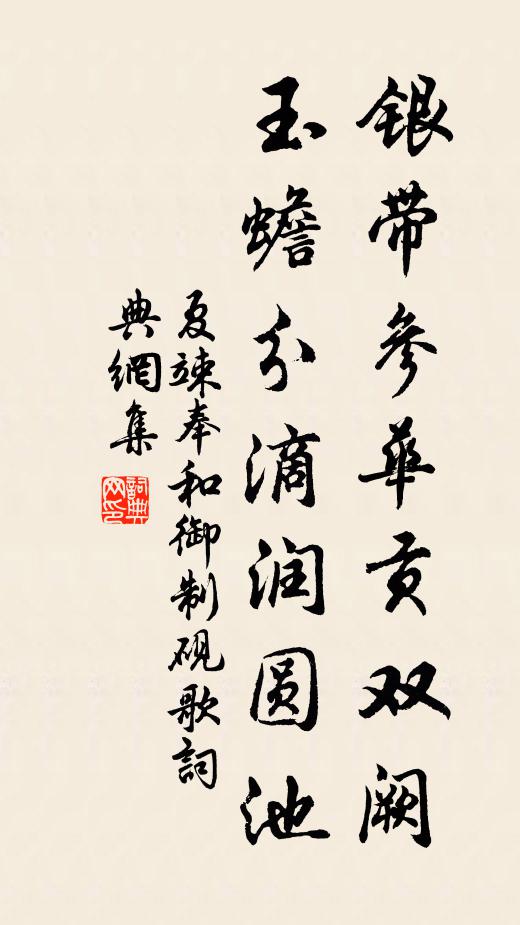 银带参华贡双阙
玉蟾分滴润圆池
夏竦奉和御制砚歌詞
典網集
詞典网印